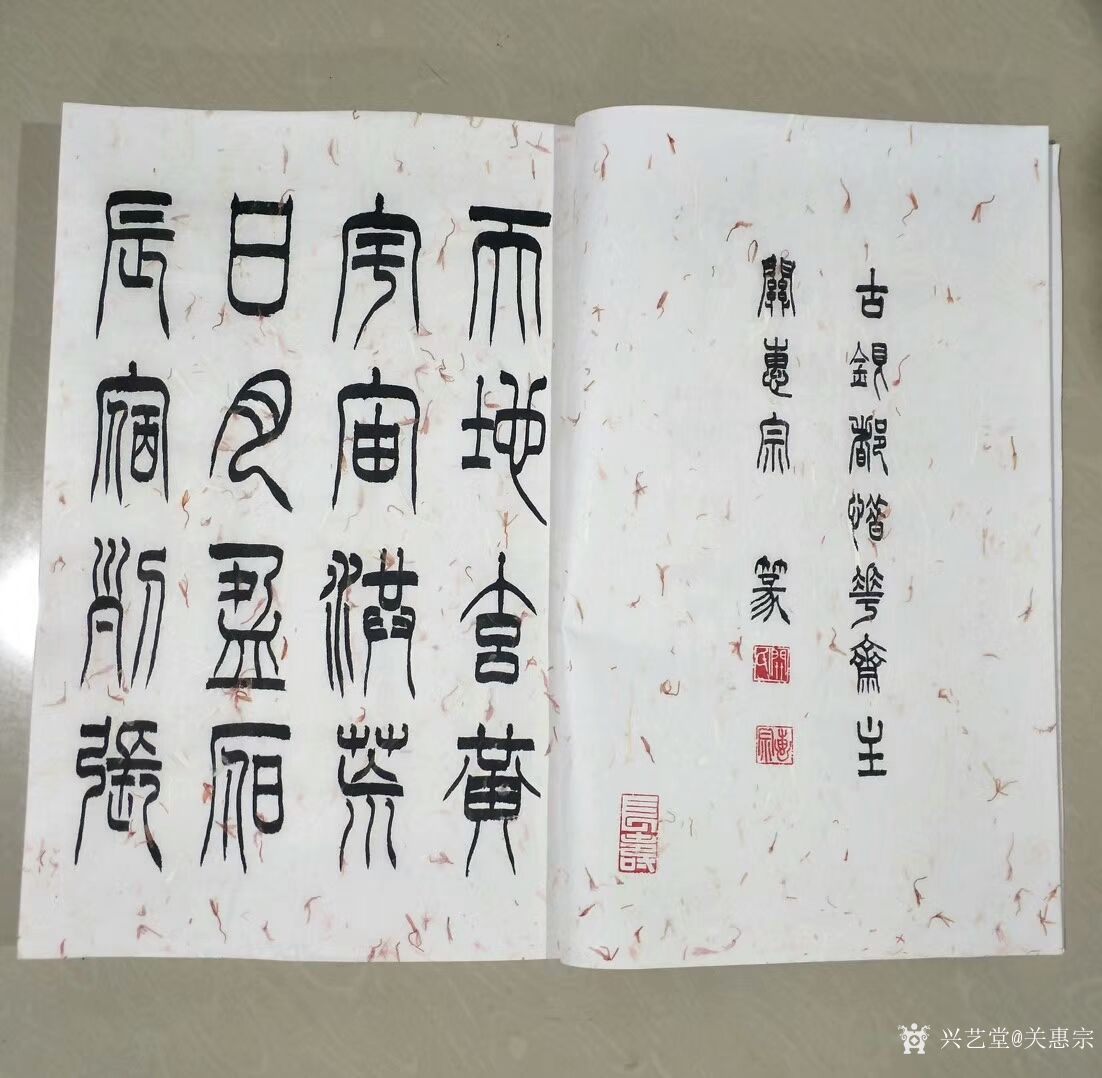 古銀都惜華齋主
關惠宗 篆
關氏
惠宗
天地玄黃
宇宙洪荒
日月盈昃
辰宿列張
兴艺堂@关惠宗